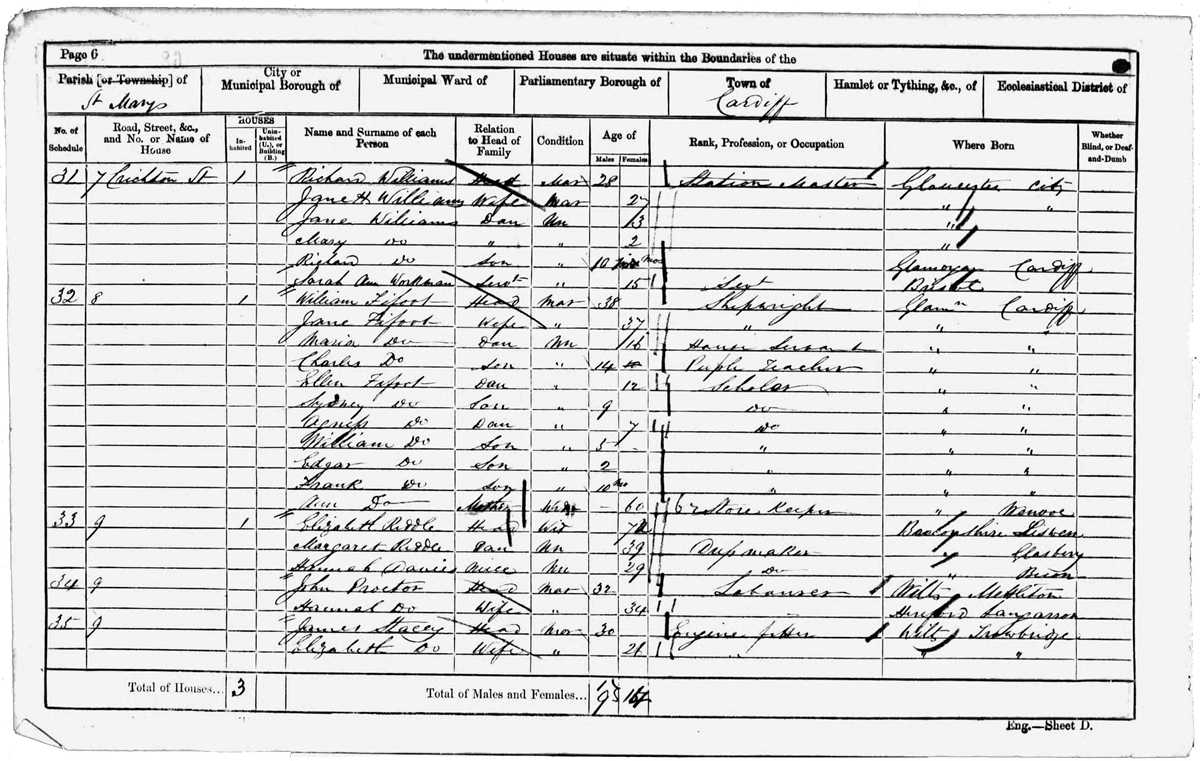 Page 6 The undermentioned Houses are situate within the Boundaries of the
Parish [or Township] of City or Municipal Borough of Municipal Ward of Parliamentary Borough of Town of Hamlet or Tything, &c., of Ecclesiastical District of
St Marys Cardiff
No. of Schedule Road, Street, &c., and No. or Name of House HOUSES Inhabited Uninhabited (U.), or Building (B.) Name and Surname of each Person Relation to Head of Family Condition Age of Males Females Rank, Profession, or Occupation Where Born Whether Blind, or Deaf-and-Dumb
31 7 Crichton St 1 Richard Williams Head Mar 28 Station Master Gloucester City
Jane H Williams Wife Mar 27 " "
Jane Williams Dau Un 13 "
Mary Do " " 2 "
Son " 10 Mos Cardiff
Sarah Ann Workman Servt " 15 Bristol
32 8 1 William Fifoot Head Mar 38 Shipwright Glamn Cardiff
Jane Fifoot Wife " 37 " " "
Maria Do Dau Un 16 House Servant " "
Charles Do Son " 14 Teacher " "
Ellen Fifoot Dau " 12 Scholar " "
Sydney Do Son " 9 Do " "
Agness Do Dau " 7 Do " "
William Do Son " 5 " " "
Edgar Do Son " 2 " " "
Frank Do Son " 10 Mo " " "
Ann Do Mother Wid 60 Store Keeper "
33 9 1 Elizabeth Riddle Head Wid
Margaret Riddle Dau Un 39 Dressmaker " Glasbury
Hannah Davies Niece Un 29 Do "
34 9 John Proctor Head Mar 32 Labourer Wilts
Hannah Do Wife " 34 Hereford
35 9 James Stacey Head Mar 30 Engine fitter Wilts Trowbridge
Elizabeth Do Wife " 21 " "
Total of Houses... 3 Total of Males and Females...
Eng.—Sheet D.